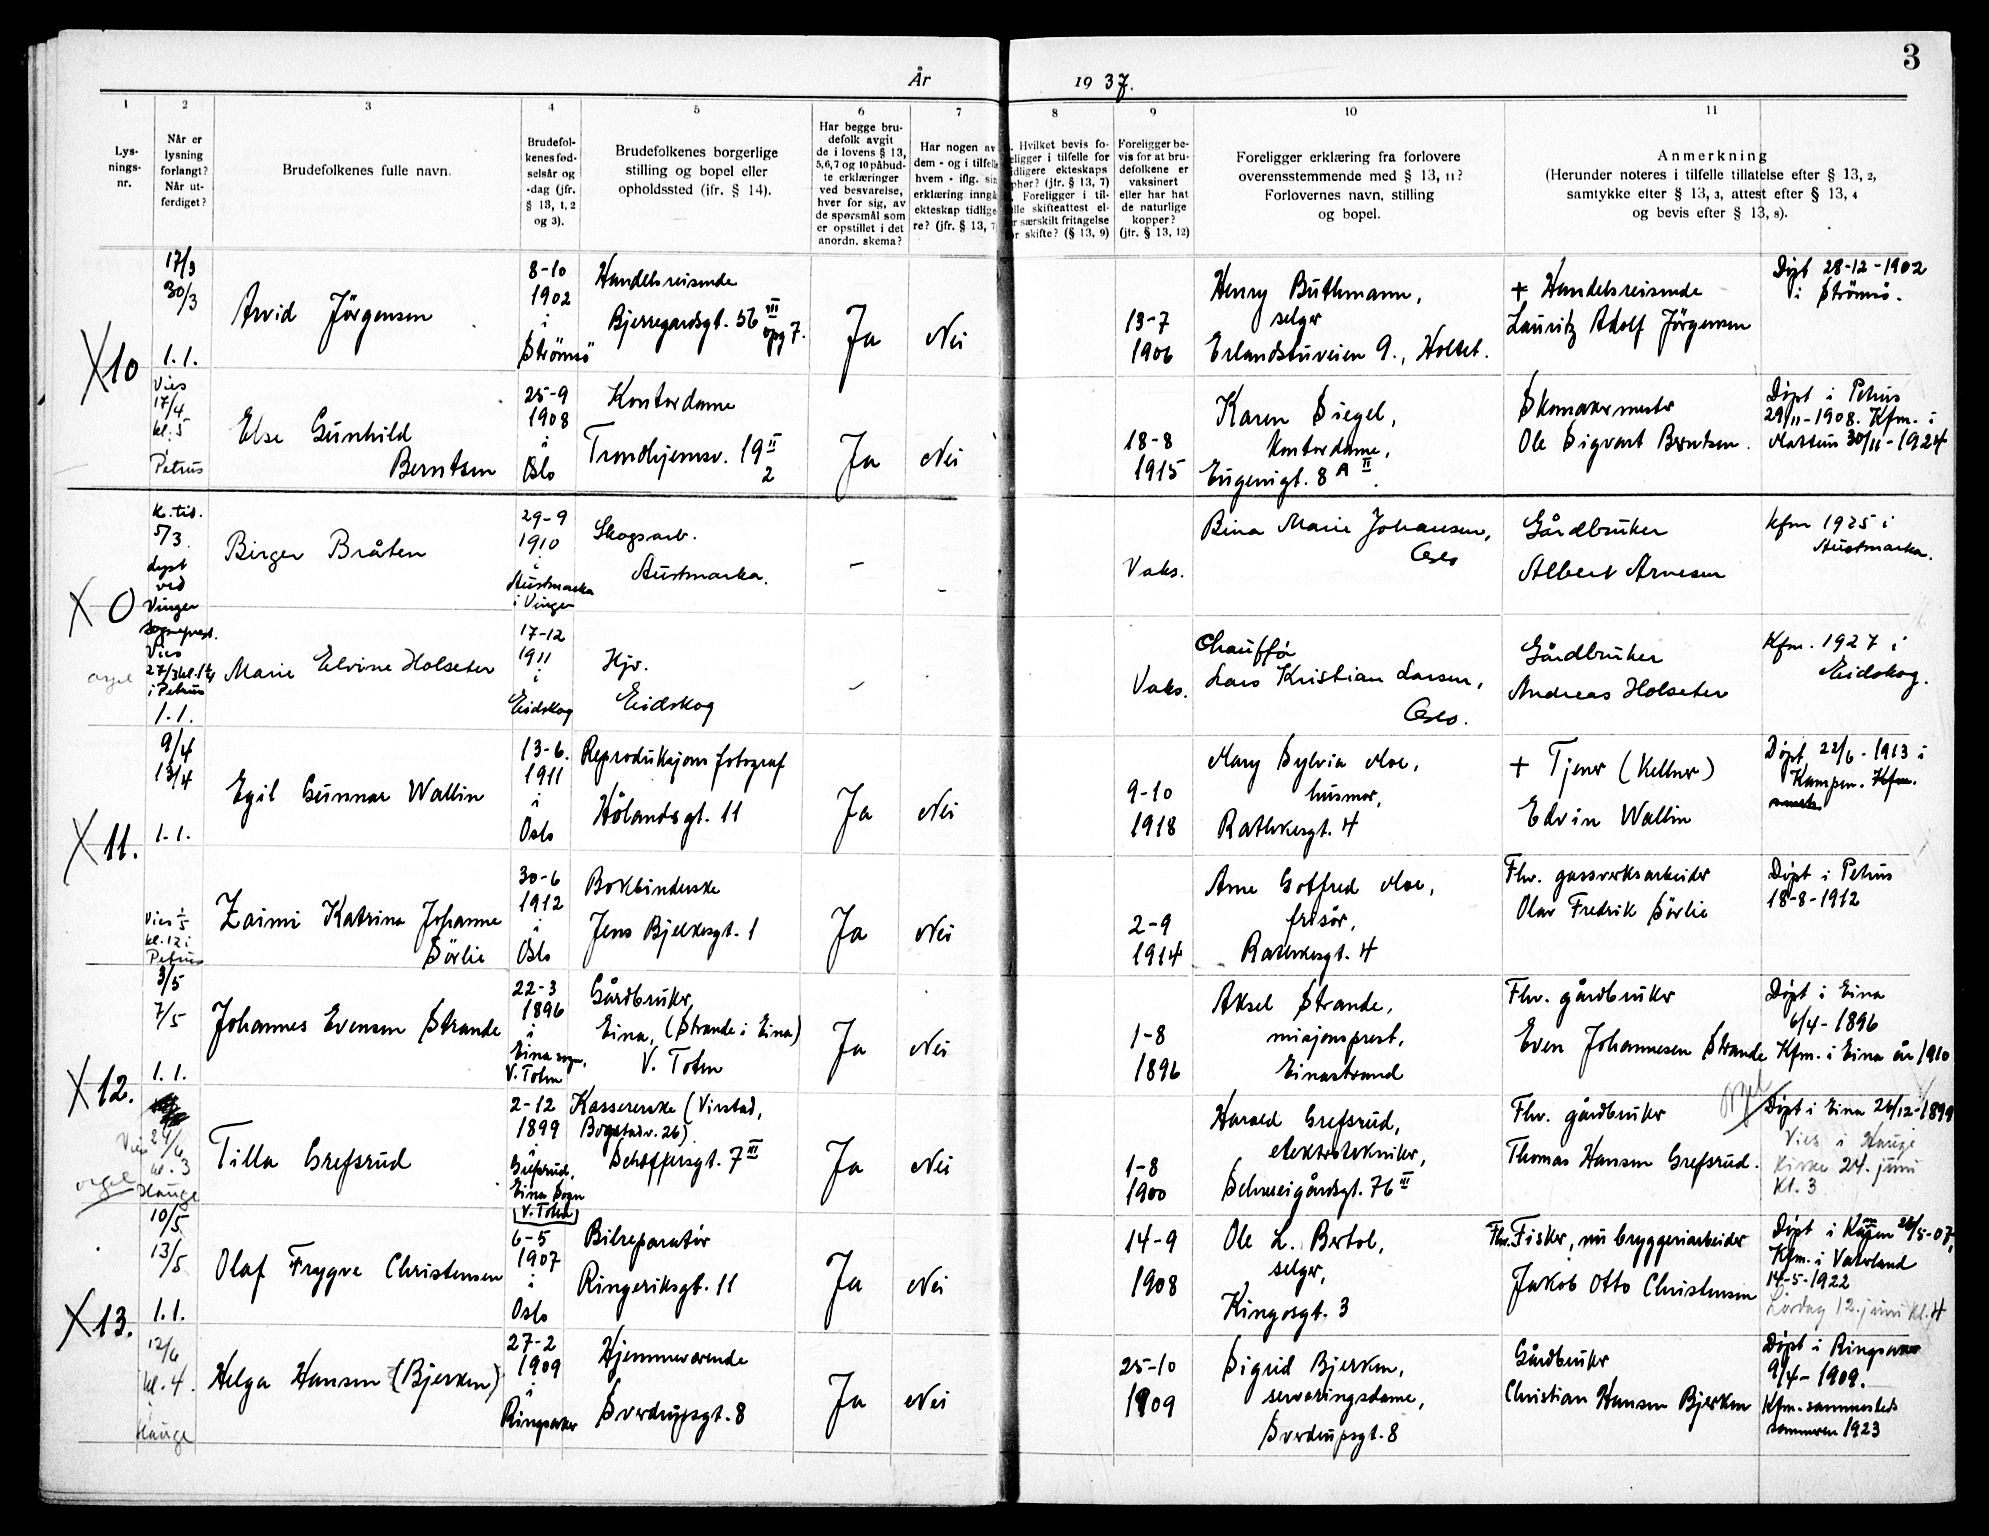 3
År 1937.
1 2 3 4 5 6 7 8 9 10 11
Lys-
nings-
nr.
Når er
lysning
forlangt?
Når ut-
ferdiget?
Brudefolkenes fulle navn.
Brudefol-
kenes fød-
selsår og
-dag (jfr.
§ 13, 1, 2
og 3).
Brudefolkenes borgerlige
stilling og bopel eller
opholdssted (jfr. § 14).
Har begge bru-
defolk avgit
de i lovens § 13,
5,6,7 og 10 påbud-
te erklæringer
ved besvarelse,
hver for sig, av
de spørsmål som
er opstillet i det
anordn. skema?
Har nogen av
dem - og i tilfelle
hvem - iflg. sin
erklæring inngå
ekteskap tidlige
re? (jfr. § 13, 7)
Hvilket bevis fo-
eligger i tilfelle for
idligere ekteskaps
phør? (jfr. § 13, 7)
Foreligger i til-
elle skifteattest el-
er særskilt fritagelse
or skifte? (§ 13, 9)
Foreligger be-
vis for at bru-
defolkene er
vaksinert
eller har hat
de naturlige
kopper?
(jfr. § 13, 12)
Foreligger erklæring fra forlovere
overensstemmende med § 13, 11?
Forlovernes navn, stilling
og bopel.
Anmerkning
(Herunder noteres i tilfelle tillatelse efter § 13, 2,
samtykke efter § 13, 3, attest efter § 13, 4
og bevis efter § 13, 8).
X 10
17/3
30/3
1.1.
Arvid Jörgensen
8-10
1902
i
Strömsö
Handelsreisende
Bjerregardsgt. 56 III
opg 7.
Ja
Nei
13-7
1906
Henry Buthmann,
selger
Erlandstuveien 9., Holset.
+ Handelsreisende
Lauritz Adolf Jörgensen
Döpt 28-12-1902
i Strömsö.
Vies
17/4
kl. 5
Petrus
Else Gunhild
Berntsen
25-9
1908
i
Oslo
Kontordame
Trondhjemsv. 19 II
2
Ja
Nei
18-8
1915
Karen Siegel,
kontordame,
Eugenigt. 8 A II.
Skomakermester
Ole Sigvart Berntsen.
Döpt i Petrus
29/11-1908. Kfm. i
Matteus 30/11-1924
X 0
K. tid.
5/3.
lyst
ved
Vinger
sogneprest.
Birger Bråten
29-9
1910
i
Austmarka
i Vinger
Skogsarb.
Austmarka.
-
-
Vaks.
Bina Marie Johansen,
Oslo
Gårdbruker
Albert Arnesen
kfm 1925 i
Austmarka.
orgel
Vies
i Petrus
1.1.
Marie Elvine Holseter
17-12
1911
i
Eidskog
Hjv.
Eidskog
-
Vaks.
Chauffør
Lars Kristian Larsen,
Oslo.
Gårdbruker
Andreas Holseter
Kfm. 1927 i
Eidskog.
X 11.
9/4
13/4
1.1.
Egil Gunnar Wallin
13-6.
1911
i
Oslo
Reproduksjons fotograf
Hölandsgt. 11
Ja
Nei
9-10
1918
Mary Sylvia Moe,
husmor,
Rathkesgt. 4
+ Tjener (Kellner)
Edvin Wallin
Döpt 22/6-1913 i
Kampen. Kfm.
Vies 1/5
kl. 12 i
Petrus
Zaimi Katrina Johanne
Sörlie
30-6
1912
i
Oslo
Bokbinderske
Jens Bjelkesgt. 1
Ja
Nei
2-9
1914
Arne Gotfred Moe,
frisör,
Rathkesgt. 4
Fhv. gassverksarbeider
Olav Fredrik Sörlie
Döpt i Petrus
18-8-1912
X 12.
3/5
7/5
1.1.
Johannes Evensen Strande
22-3
1896
i
Eina sogn,
V. Toten
Gårdbruker,
Eina, (Strande i Eina)
V. Toten
Ja
Nei
1-8
1896
Aksel Strande,
misjonsprest,
Einastrand
Fhv. gårdbruker
Even Johannesen Strande
Döpt i Eina
6/4-1896
Kfm. i Eina år 1910
Vies
24/6
kl. 3
Hauge
orgel
Tilla Grefsrud
2-12
1899
i
Grefsrud,
Eina Sogn
V. Toten
Kassererske (Virstad,
Bogstadv. 26)
Schöffersgt. 7 III
Ja
Nei
1-8
1900
Harald Grefsrud,
elektrotekniker,
Schweigårdsgt. 76 III
Fhv. gårdbruker
Thomas Hansen Grefsrud.
orgel
Döpt i Eina 26/12-1899
Vies i Hauge
Kirke 24. juni
Kl. 3
X 13.
10/5.
13/5
1.1.
Olaf Trygve Christensen
6-5
1907
i
Oslo
Bilreparatör
Ringeriksgt. 11
Ja
Nei
14-9
1908
Ole L. Bertol,
selger,
Kingosgt. 3
Fhv. Fisker, nu bryggeriarbeider
Jakob Otto Christensen
Döpt i Kampen 26/5-07,
Kfm. i Vaterland
14-5-1922
Lördag 12. juni Kl. 4
12/6
kl. 4.
i
Hauge
Helga Hansen (Bjerken)
27-2
1909
i
Ringsaker
Hjemmeværende
Sverdrupsgt. 8
Ja
Nei
25-10
1909
Sigrid Bjerken,
serveringsdame,
Sverdrupsgt. 8
Gårdbruker
Christian Hansen Bjerken
Döpt i Ringsaker
9/4-1909.
Kfm. sammesteds
sommeren 1923